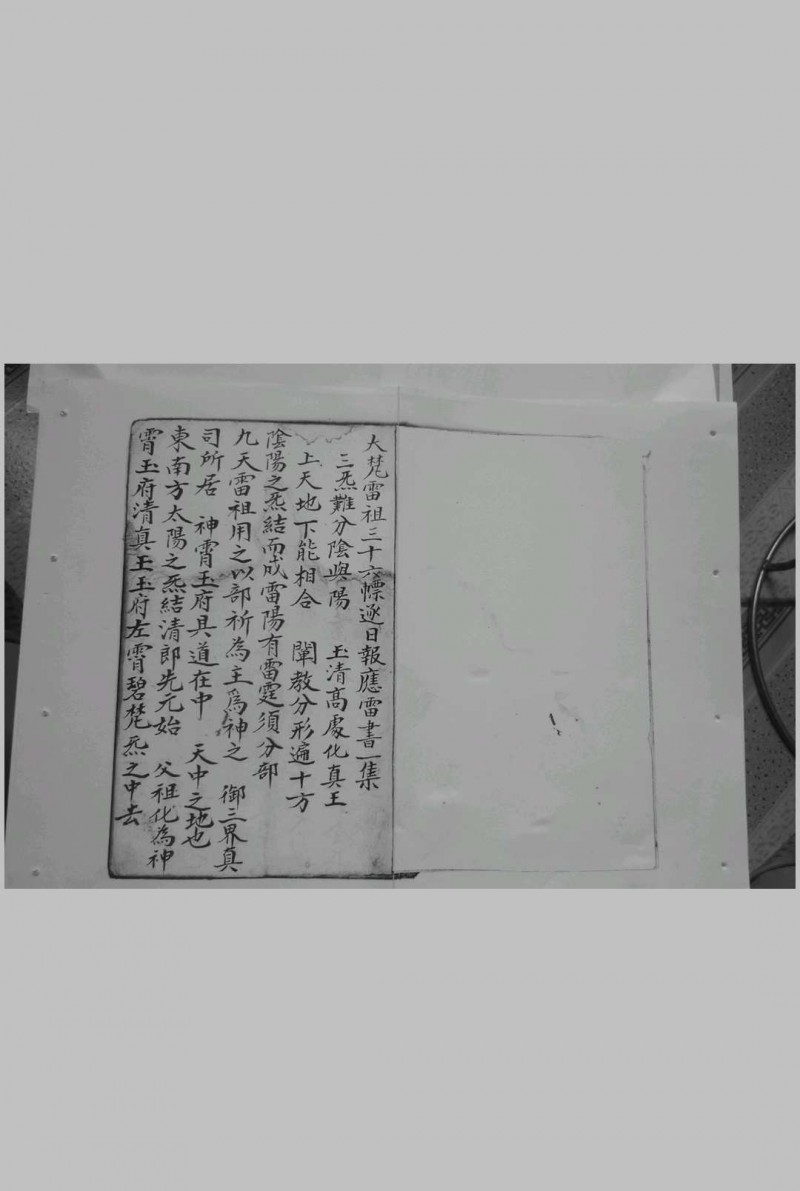 大梵雷祖三十六幖逐日報應雷書一集
三炁難分陰與陽　玉清高處化真王
上天地下能相合　闡教分形遍十方
陰陽之炁結而成雷陽有雷霆須分部
九天雷祖用之以部祈為主為神之　御三界真
司所居　神霄玉府具道在中　天中之地也
東南方太陽之炁結清郎先元始　父祖化為神
霄玉府清真王玉府左霄碧梵炁之中去